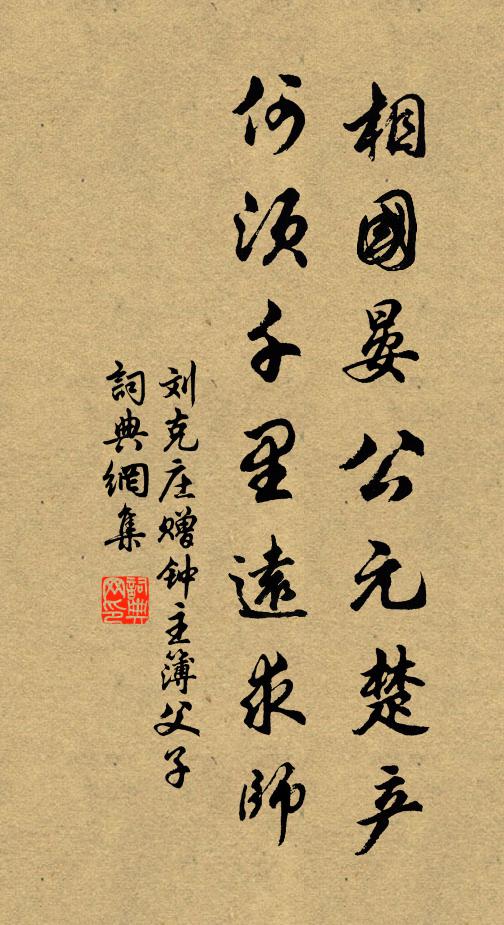 相國晏公元楚产
何須千里遠求師
刘克庄赠钟主簿父子
詞典網集
詞典
网印